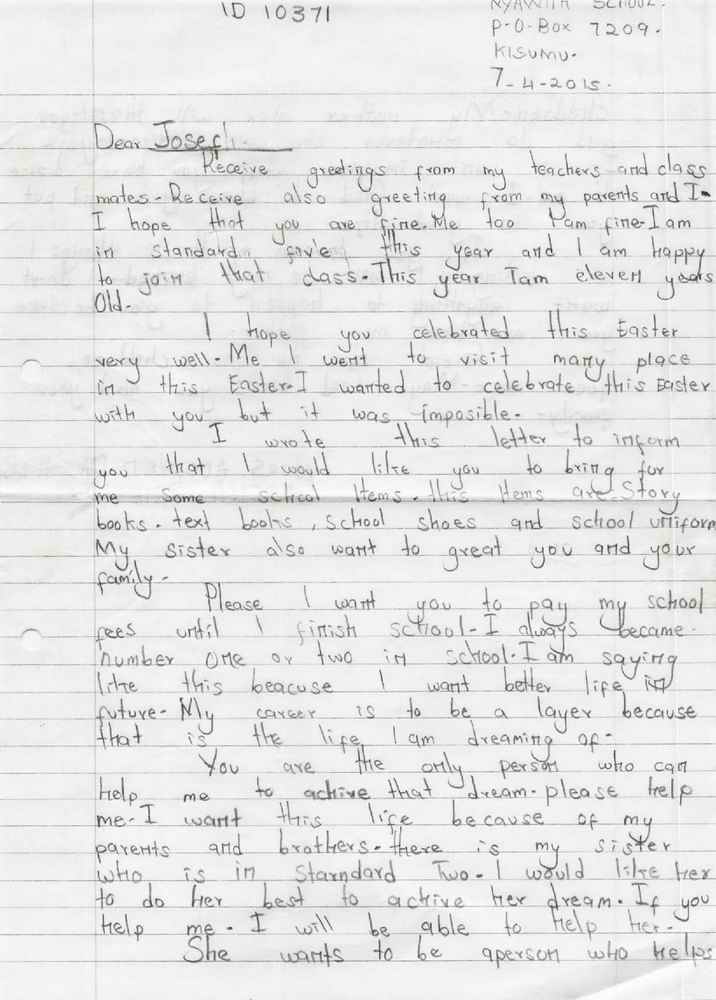 ID 10371
NYAWITA SCHOOL.
P-O-Box 7209.
KISUMU.
7-4-2015.
Dear Josech
Receive greetings from my teachers and class
mates. Receive also greeting from my parents and I.
I hope that you are fine. Me too I am fine. I am
in standard five this year and I am happy
to join that class. This year I am eleven years
Old.
I hope you celebrated this Easter
very well. Me I went to visit many place
in this Easter. I wanted to celebrate this Easter
with you but it was imposible.
I wrote this letter to inform
you that I would like you to bring for
me some school Items. this Items are. Story
books. text books, school shoes and school uniform
My sister also want to great you and your
family.
Please I want you to pay my school
fees until I finish school. I always became.
number one or two in school. I am saying
like this beacuse I want better life in
future. My career is to be a layer because
that is the life I am dreaming of.
You are the only person who can
help me to achive that dream. please help
me. I want this life because of my
parents and brothers. there is my sister
who is in Starndard Two. I would like her
to do her best to achive her dream. If you
help me. I will be able to help her.
She wants to be aperson who helps